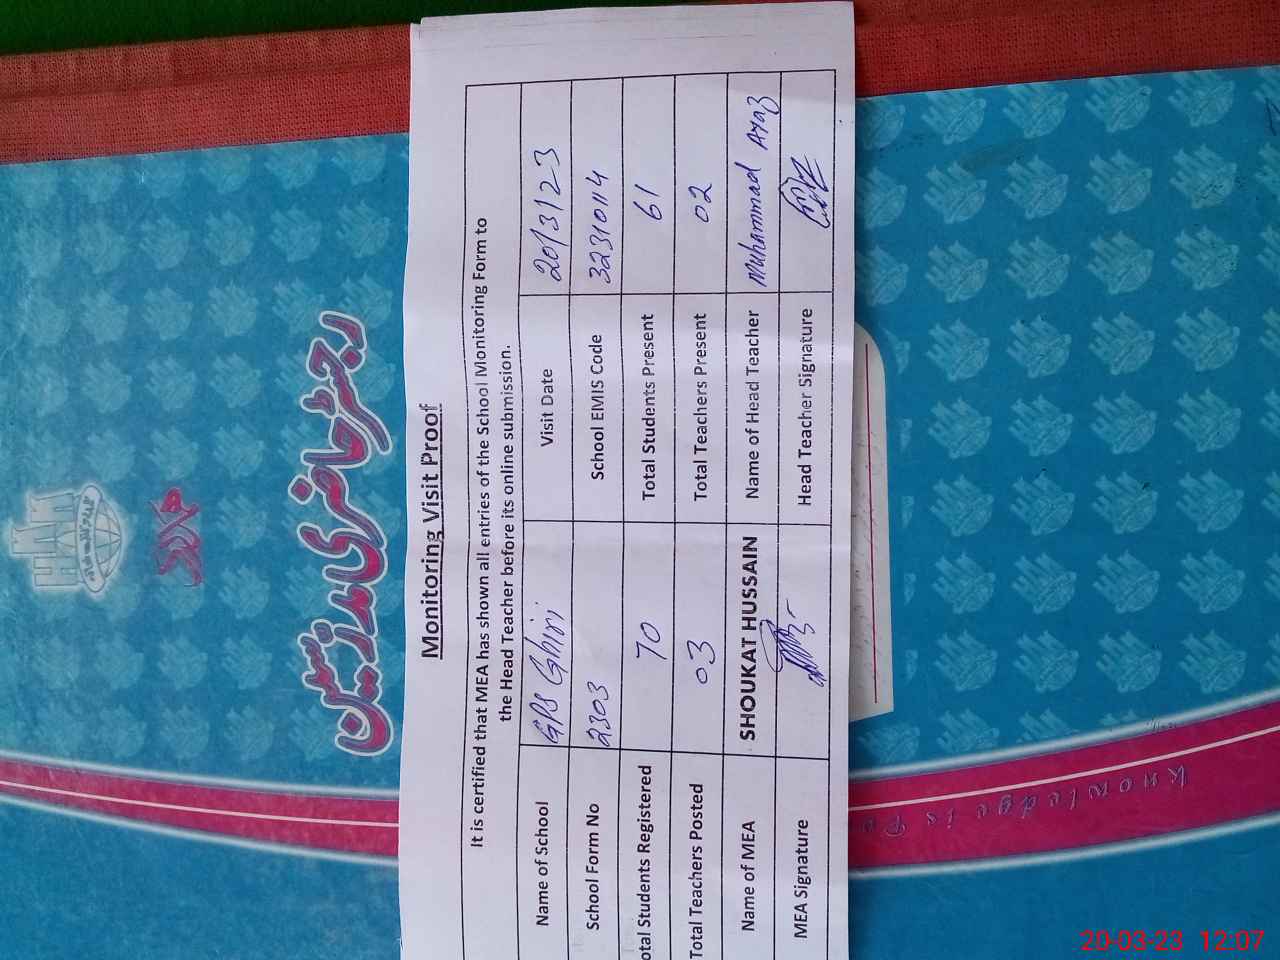 Monitoring Visit Proof
It is certified that MEA has shown all entries of the School Monitoring Form to
the Head Teacher before its online submission.
Name of School GPS Ghiri Visit Date 20/3/23
School Form No 2303 School EMIS Code 32310114
otal Students Registered 70 Total Students Present 61
Total Teachers Posted 03 Total Teachers Present 02
Name of MEA SHOUKAT HUSSAIN Name of Head Teacher Muhammad Ayaz
MEA Signature Head Teacher Signature
رجسٹر حاضری ملازمین
Knowledge is
20-03-23 12:07